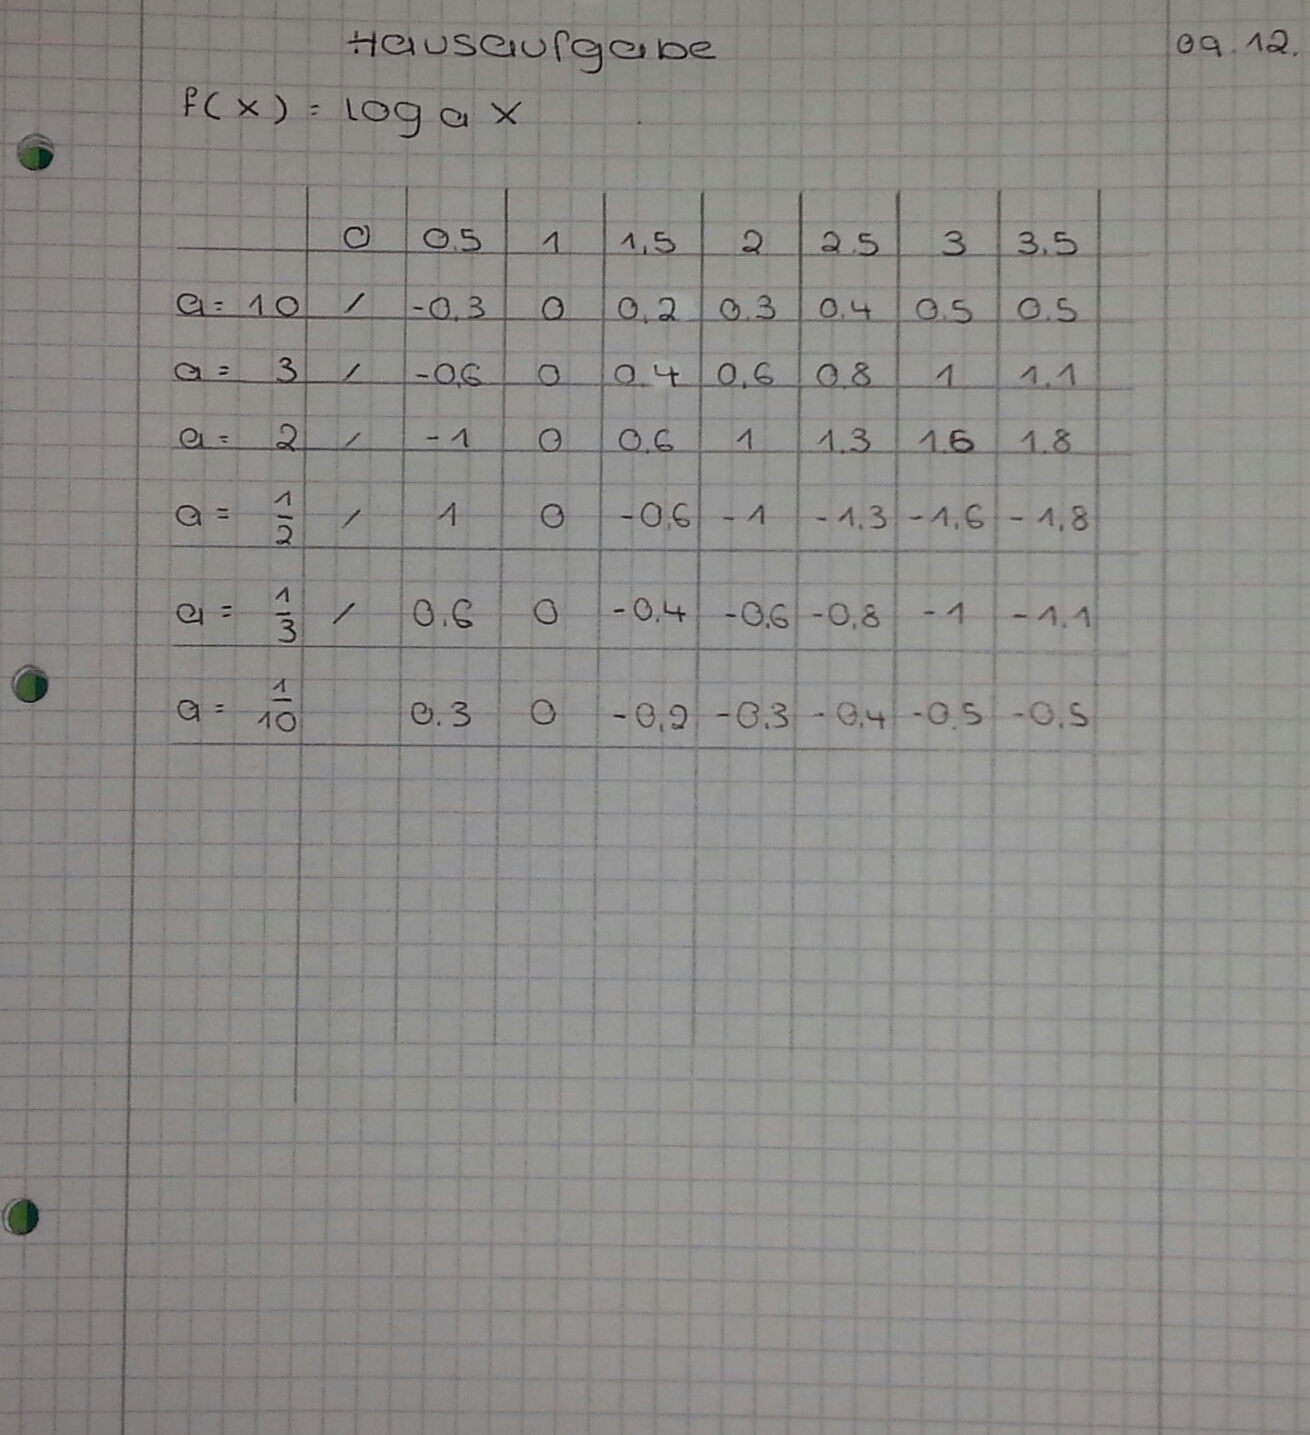 Hausaufgabe 09.12.
f(x) = log a x
0 0.5 1 1,5 2 2.5 3 3.5
a = 10 / -0.3 0 0.2 0.3 0.4 0.5 0.5
a = 3 / -0.6 0 0.4 0.6 0.8 1 1.1
a = 2 / -1 0 0.6 1 1.3 1.6 1.8
a = 1/2 / 1 0 -0.6 -1 -1.3 -1.6 -1,8
a = 1/3 / 0.6 0 -0.4 -0.6 -0.8 -1 -1.1
a = 1/10 0.3 0 -0.2 -0.3 -0.4 -0.5 -0.5